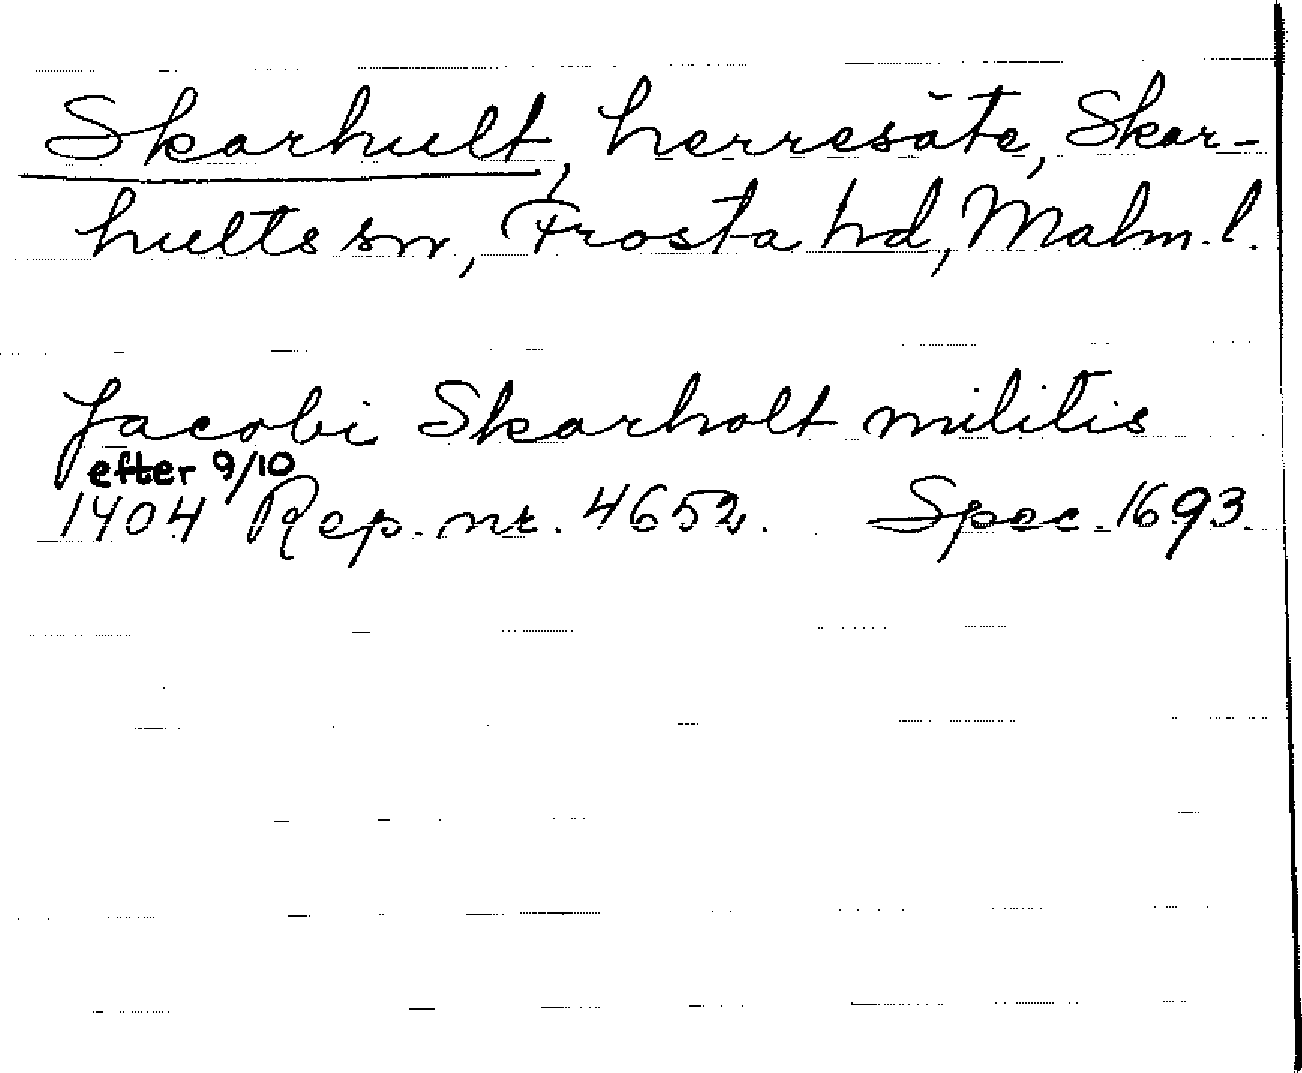 Skarhult, herresäte, Skar-
hults sn, Frosta hd, Malm. l.
Jacobi Skarholt militis
efter 9/10
1404 Rep. nr. 4652. Spec. 1693.